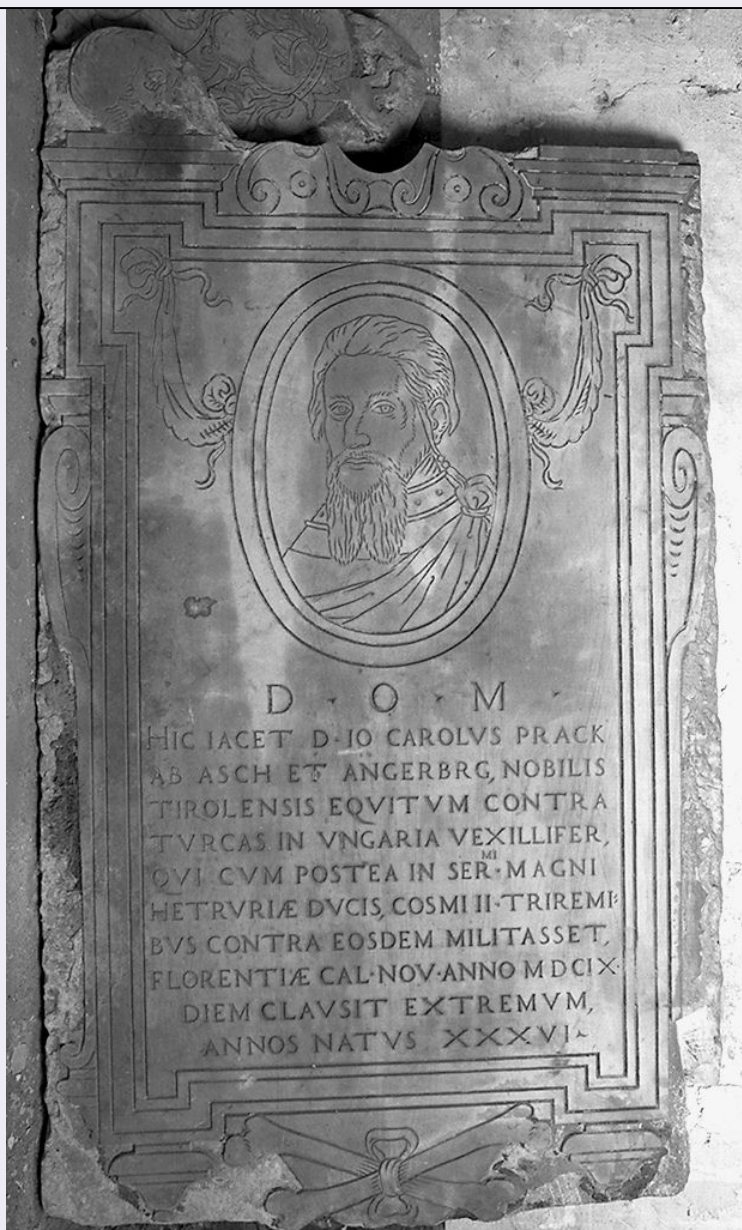 D · O · M ·
HIC IACET D·IO CAROLVS PRACK
AB ASCH ET ANGERBRG, NOBILIS
TIROLENSIS EQVITVM CONTRA
TVRCAS IN VNGARIA VEXILLIFER,
QVI CVM POSTEA IN SER.MI MAGNI
HETRVRIÆ DVCIS, COSMI II·TRIREMI·
BVS CONTRA EOSDEM MILITASSET,
FLORENTIÆ CAL·NOV·ANNO MDCIX·
DIEM CLAVSIT EXTREMVM,
ANNOS NATVS XXXVI